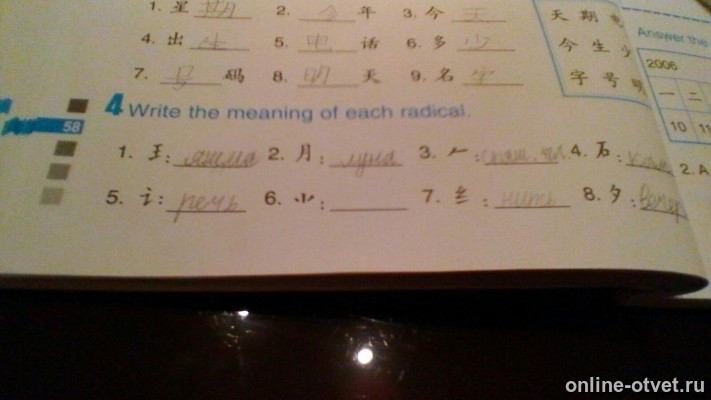 1. 星 期 2. 今 年 3. 今 天
4. 出 生 5. 电 话 6. 多 少
7. 号 码 8. 明 天 9. 名 字
天 期
今 生 少
字 号 明
Answer the
2006
一 二
10 11
2. A
4 Write the meaning of each radical.
58
1. 王: яшма 2. 月: луна 3. 𠂉: 4. 石:
5. 讠: речь 6. ⺌: 7. 纟: нить 8. 夕:
online-otvet.ru